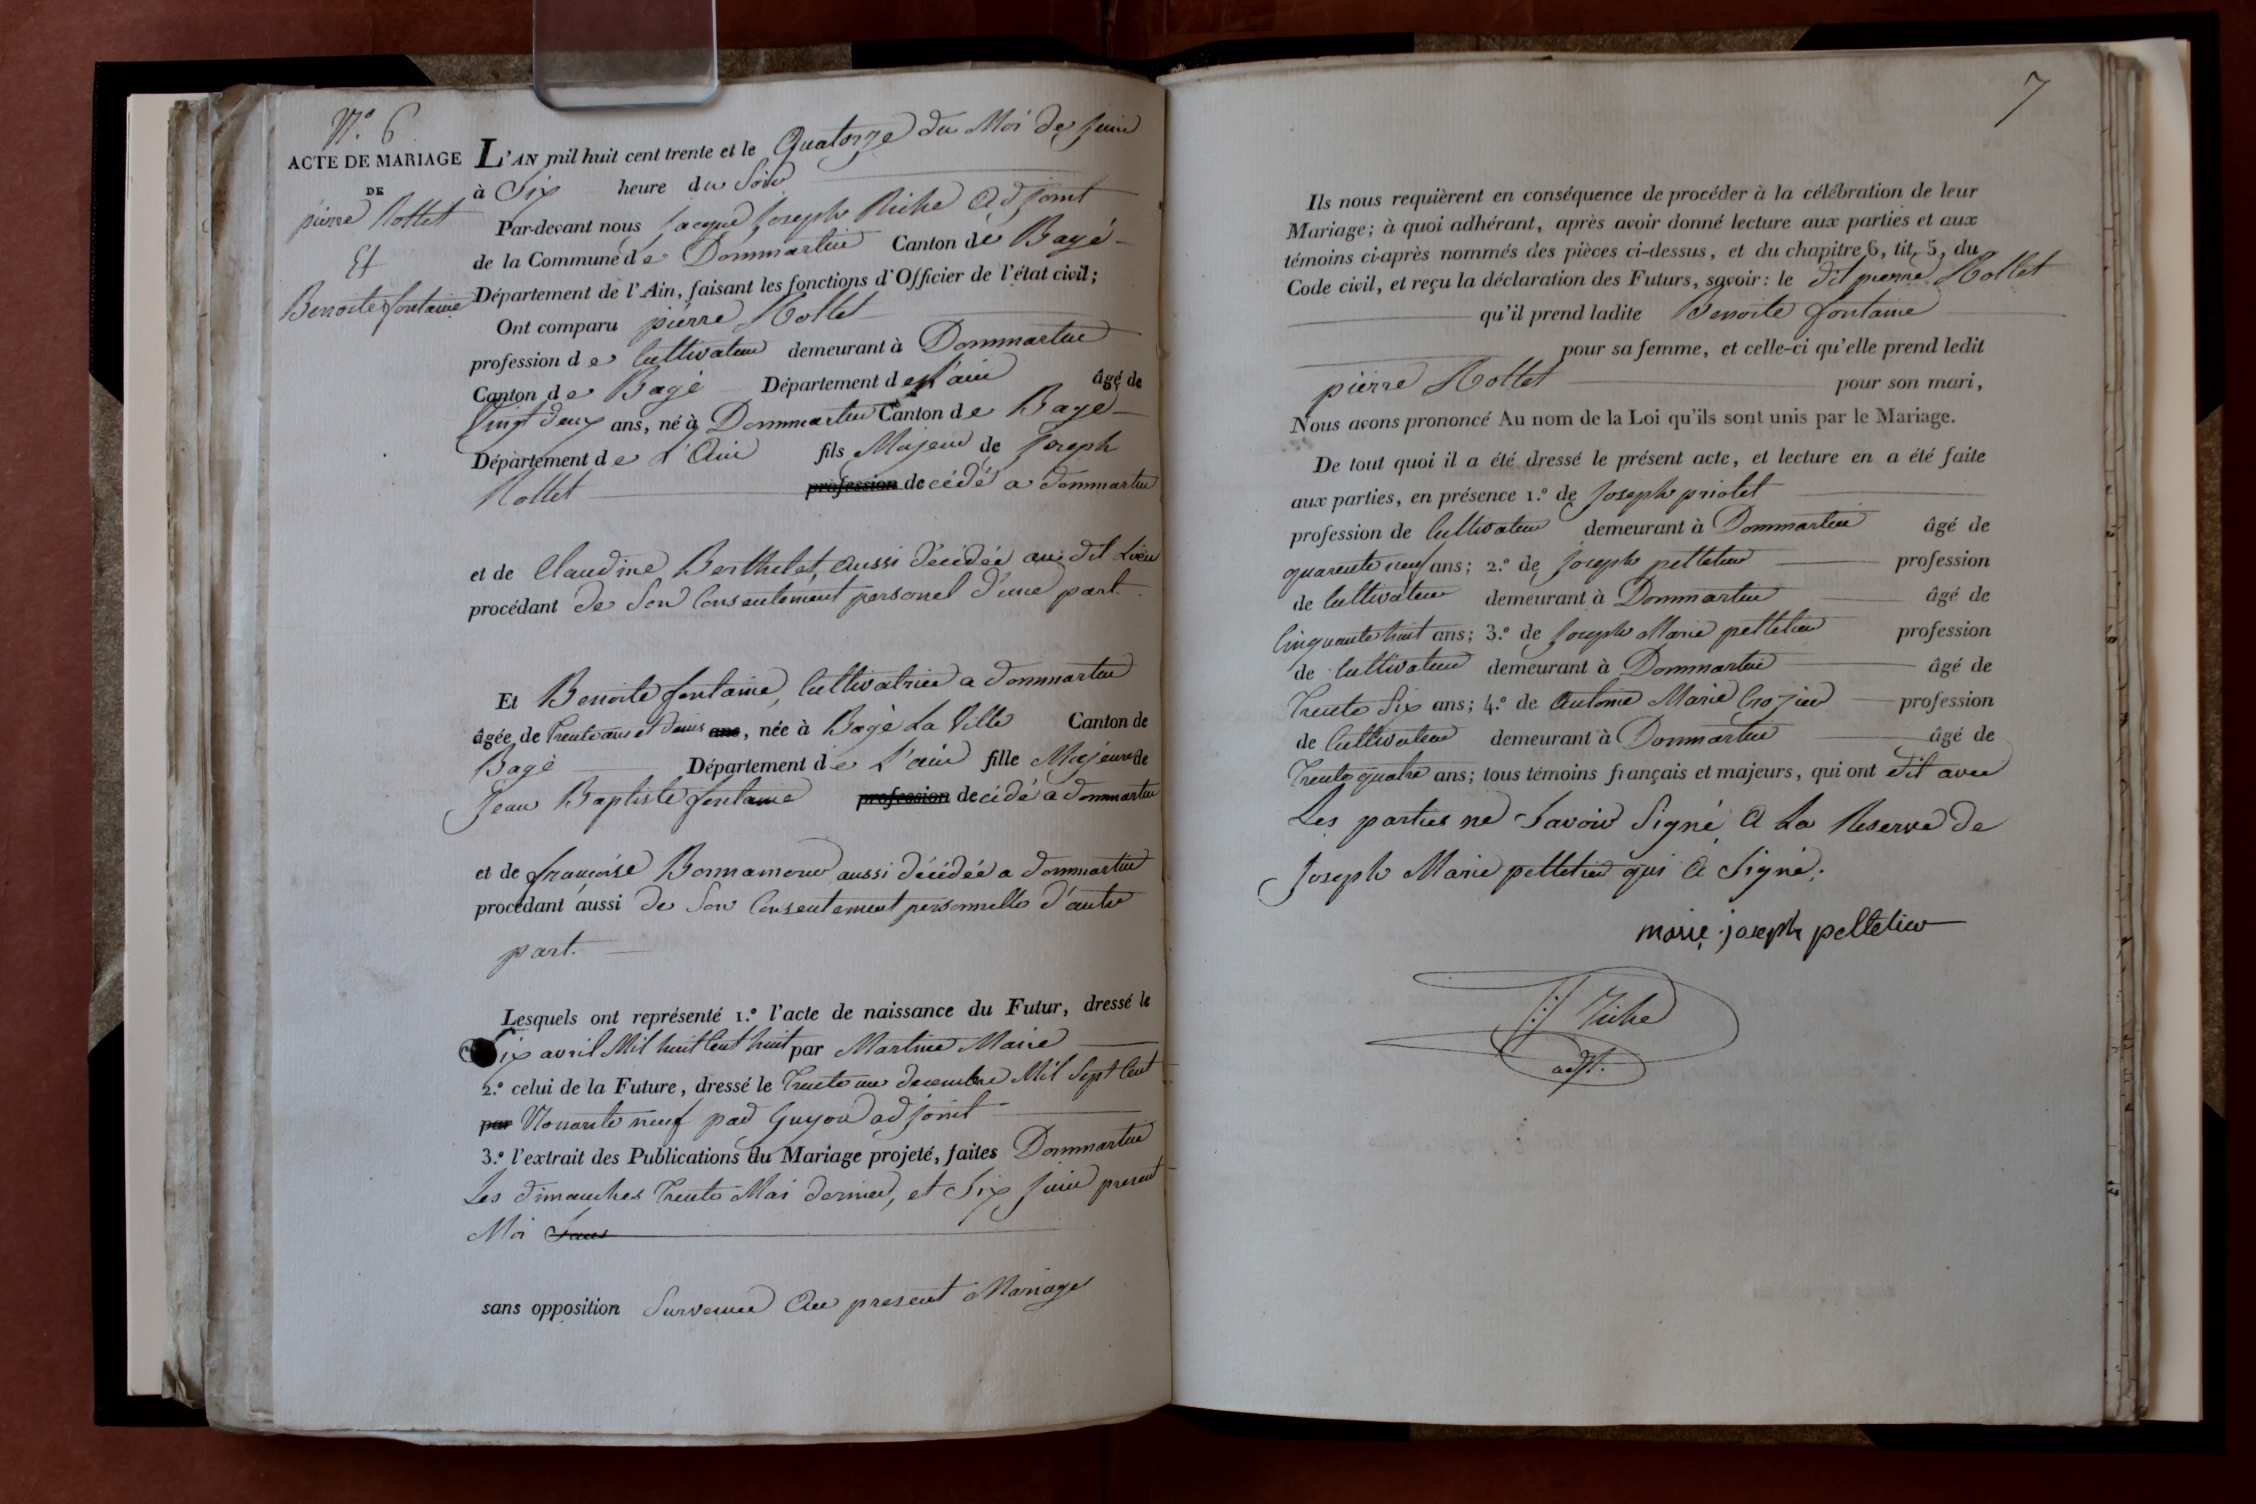 N.° 6
ACTE DE MARIAGE
DE
pierre Rollet
Et
Benoite fontaine
L'AN mil huit cent trente et le Quatorze du Moi de juin
à Six heure du Soir
Par-devant nous jacque joseph Riche Adjoint
de la Commune de Dommartin Canton de Bagé
Département de l'Ain, faisant les fonctions d'Officier de l'état civil;
Ont comparu pierre Rollet
profession de Cultivateur demeurant à Dommartin
Canton de Bagé Département de l'ain âgé de
Vingt deux ans, né à Dommartin Canton de Bagé
Département de L'Ain fils Majeur de joseph
Rollet profession decédé a dommartin
et de Claudine Berthelet, aussi décédée au dit Lieu
procédant de Son Consentement personel d'une part.
Et Benoite fontaine, Cultivatrice a dommartin
âgée de Trente ans et demis ans, née à Bagé La Ville Canton de
Bagé Département de L'ain fille Majeure de
Jean Baptiste fontaine profession decédé a dommartin
et de françoise Bonnamour aussi décédée a dommartin
procédant aussi de Son Consentement personnelle d'autre
part.
Lesquels ont représenté 1.° l'acte de naissance du Futur, dressé le
Six avril Mil huit Cent huit par Martine Maire
2.° celui de la Future, dressé le Trente un decembre Mil Sept Cent
par Nonante neuf par Guyon adjoint
3.° l'extrait des Publications du Mariage projeté, faites Dommartin
Les dimanches Trente Mai dernier, et Six juin present
Moi Sans
sans opposition Survenue Au present Mariage
7
Ils nous requièrent en conséquence de procéder à la célébration de leur
Mariage; à quoi adhérant, après avoir donné lecture aux parties et aux
témoins ci-après nommés des pièces ci-dessus, et du chapitre 6, tit. 5, du
Code civil, et reçu la déclaration des Futurs, savoir: le dit pierre Rollet
qu'il prend ladite Benoite fontaine
pour sa femme, et celle-ci qu'elle prend ledit
pierre Rollet pour son mari,
Nous avons prononcé Au nom de la Loi qu'ils sont unis par le Mariage.
De tout quoi il a été dressé le présent acte, et lecture en a été faite
aux parties, en présence 1.° de joseph priolet
profession de Cultivateur demeurant à Dommartin âgé de
quarente neuf ans; 2.° de joseph pelletier profession
de Cultivateur demeurant à Dommartin âgé de
Cinquante huit ans; 3.° de joseph Marie pelletier profession
de Cultivateur demeurant à Dommartin âgé de
Trente Six ans; 4.° de Antoine Marie Crozier profession
de Cultivateur demeurant à Dommartin âgé de
Trente quatre ans; tous témoins français et majeurs, qui ont dit avec
Les parties ne Savoir Signé A La Reserve de
Joseph Marie pelletier qui A Signé.
marie joseph pelletier
JJ Riche
adjt.